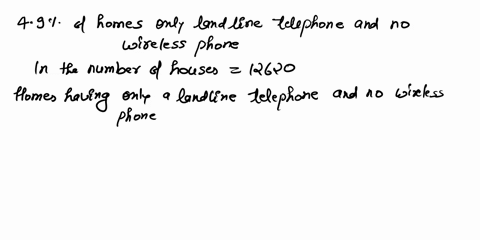 4.9% of homes only landline telephone and no
wireless phone
In the number of houses = 12620
Homes having only a landline telephone and no wireless
phone